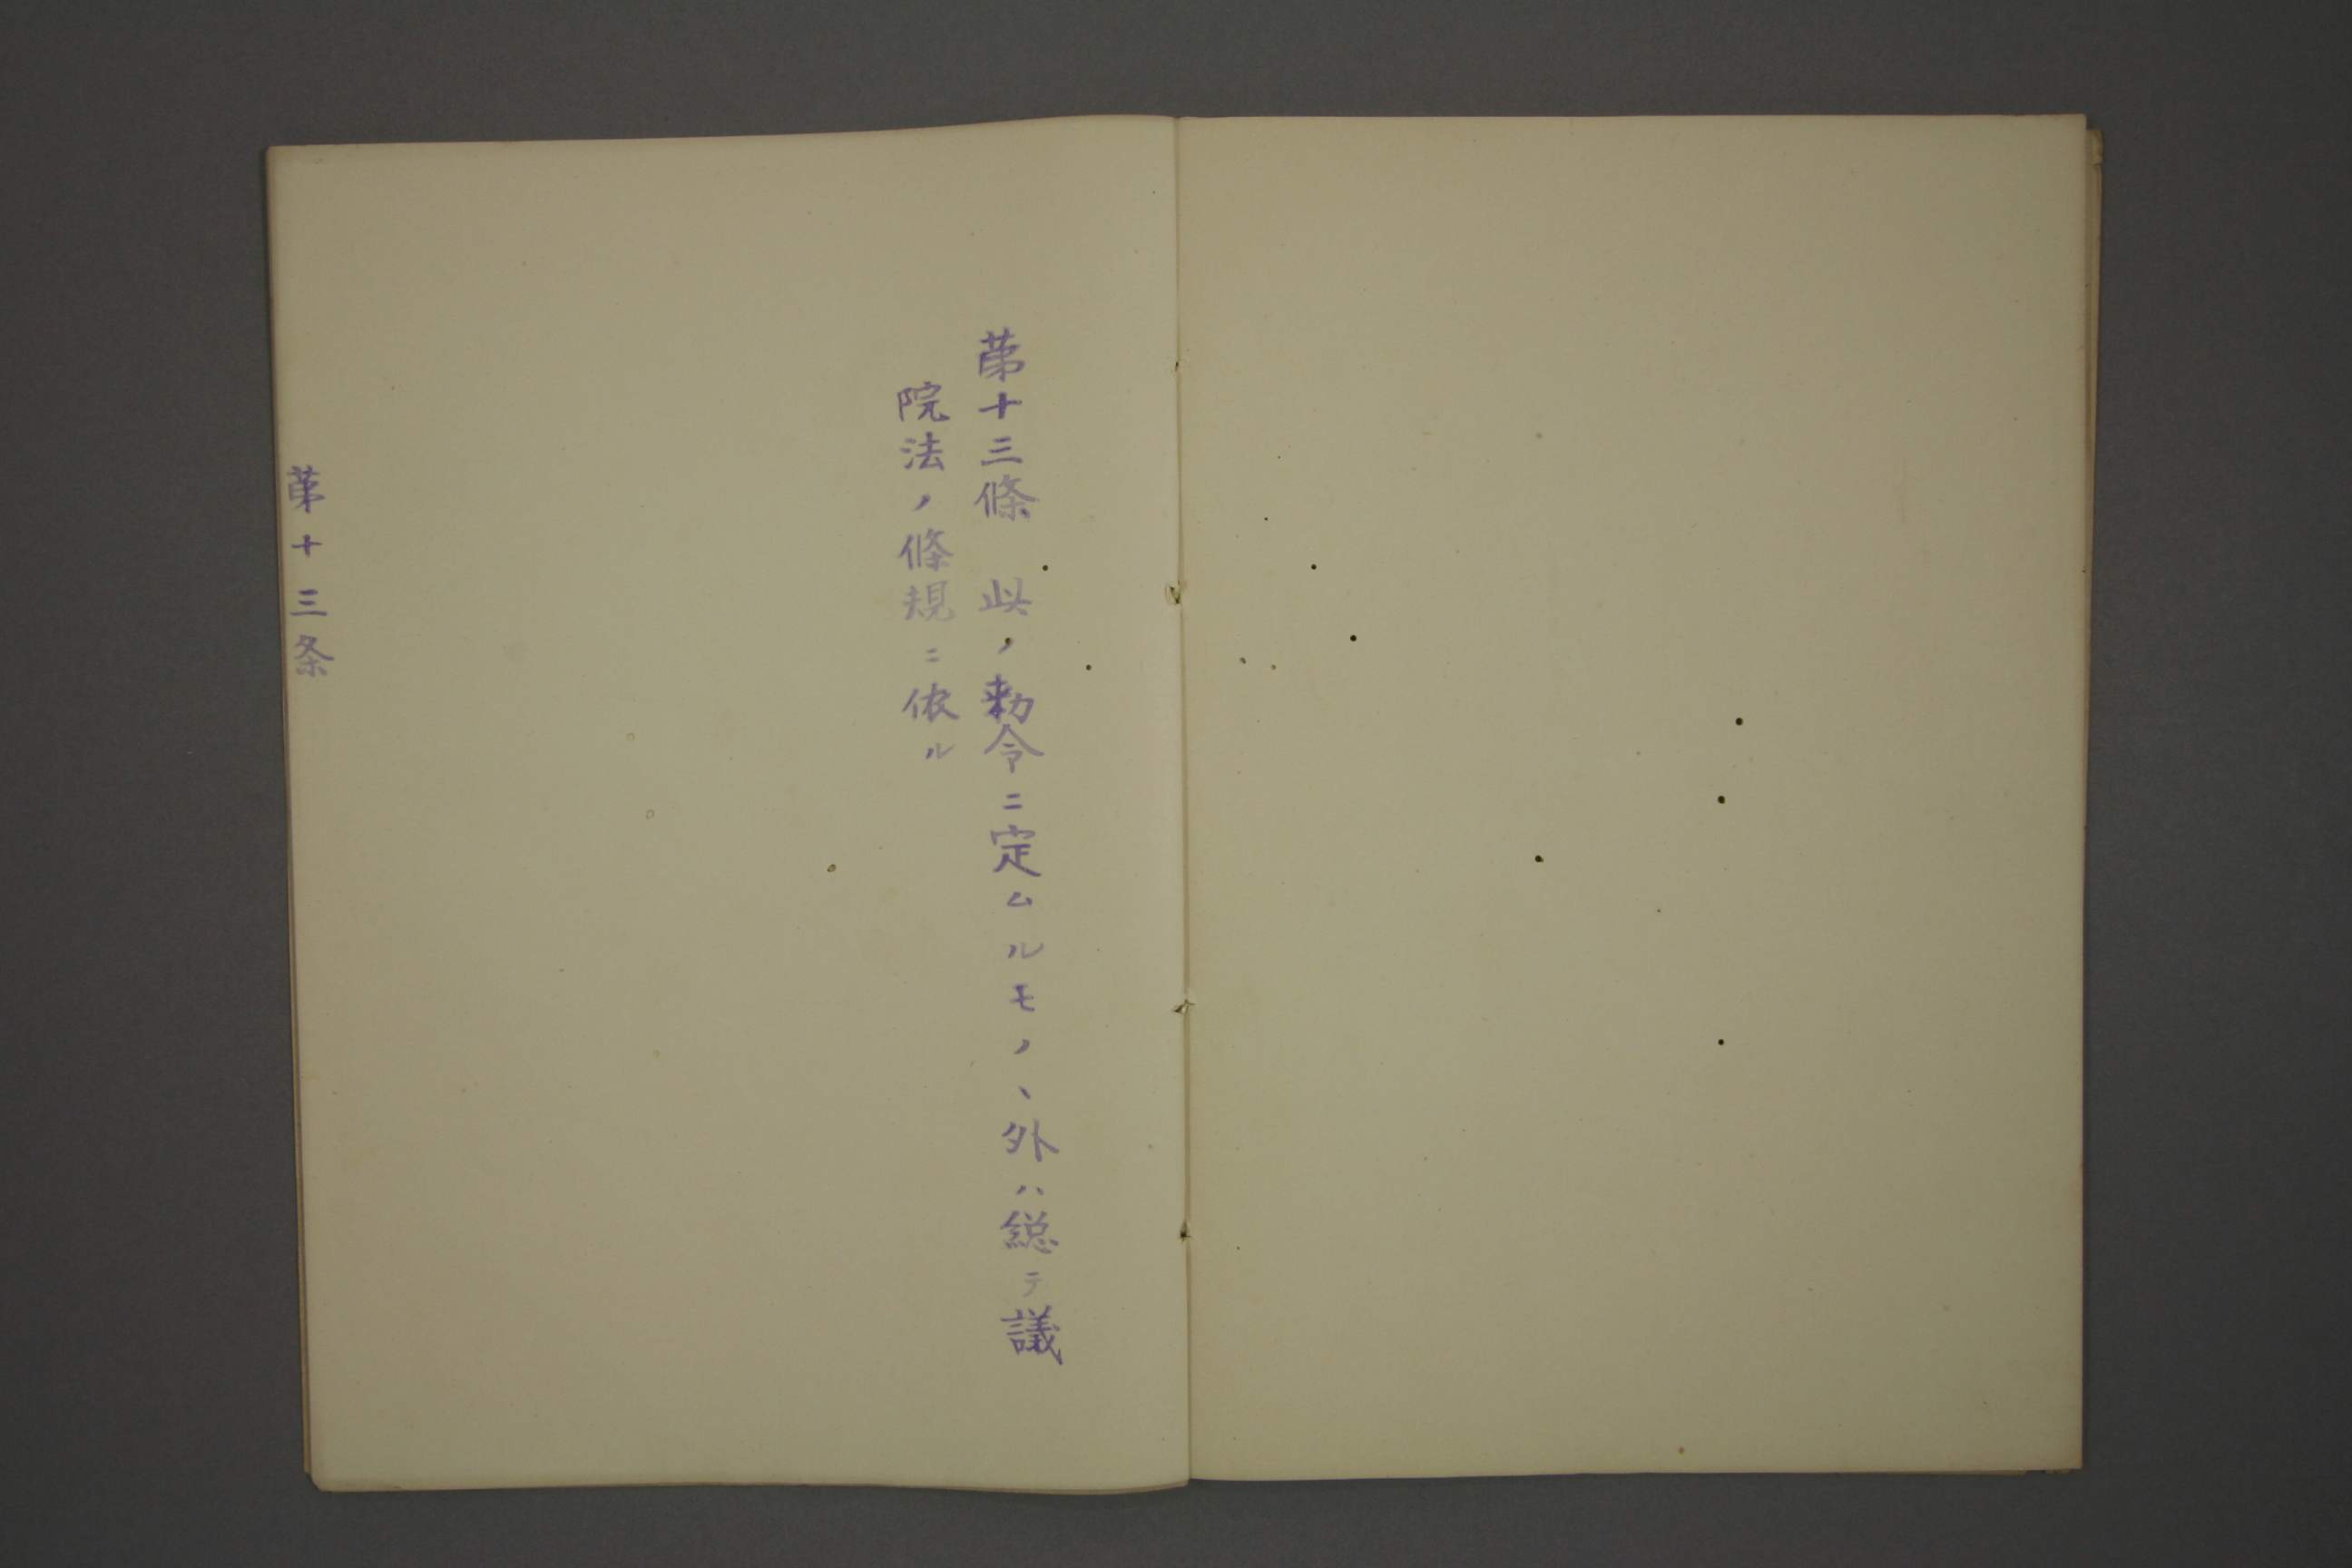 第十三條　此ノ勅令ニ定ムルモノヽ外ハ総テ議
院法ノ條規ニ依ル
第十三条